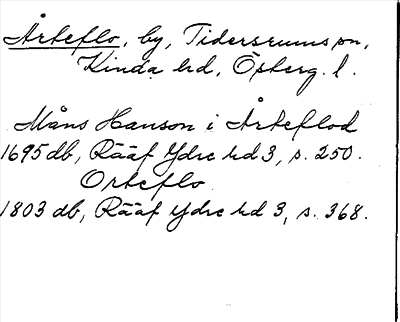 Årteflo, by, Tidersrums sn,
Kinda hd, Österg. l.
Måns Hanson i Årteflod
1695 db, Rääf Ydre hd 3, s. 250.
Orteflo
1803 db, Rääf Ydre hd 3, s. 368.